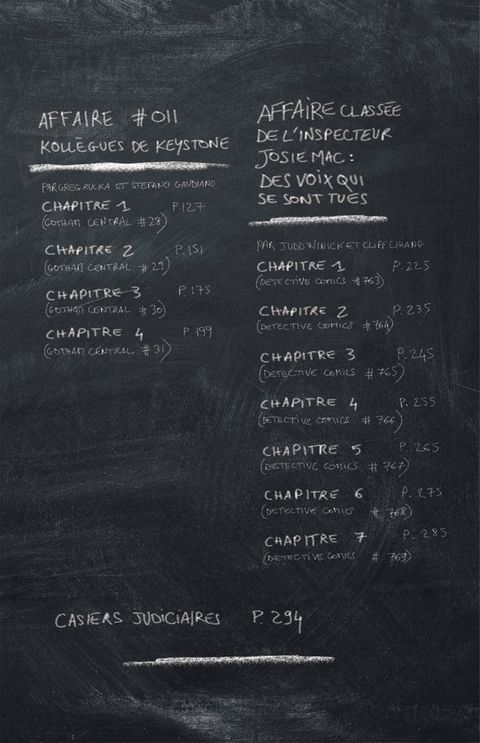 AFFAIRE #011
KOLLÈGUES DE KEYSTONE
PAR GREG RUCKA ET STEFANO GAUDIANO
CHAPITRE 1 P.127
(GOTHAM CENTRAL #28)
CHAPITRE 2 P.151
(GOTHAM CENTRAL #29)
CHAPITRE 3 P.175
(GOTHAM CENTRAL #30)
CHAPITRE 4 P.199
(GOTHAM CENTRAL #31)
AFFAIRE CLASSÉE
DE L'INSPECTEUR
JOSIE MAC :
DES VOIX QUI
SE SONT TUES
PAR JUDD WINICK ET CLIFF CHIANG
CHAPITRE 1 P.225
(DETECTIVE COMICS #763)
CHAPITRE 2 P.235
(DETECTIVE COMICS #764)
CHAPITRE 3 P.245
(DETECTIVE COMICS #765)
CHAPITRE 4 P.255
(DETECTIVE COMICS #766)
CHAPITRE 5 P.265
(DETECTIVE COMICS #767)
CHAPITRE 6 P.275
(DETECTIVE COMICS #768)
CHAPITRE 7 P.285
(DETECTIVE COMICS #769)
CASIERS JUDICIAIRES P.294